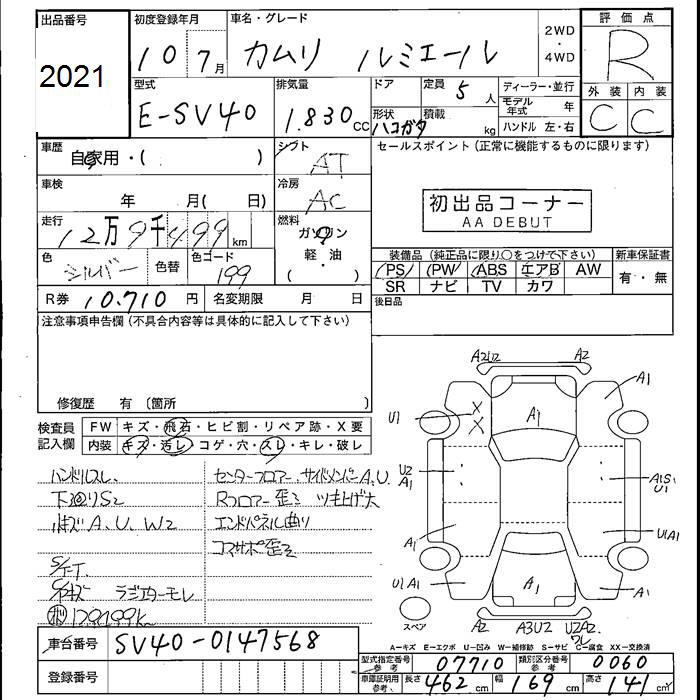 出品番号
2021
初度登録年月
10 7月
車名・グレード
カムリ ルミエール
2WD
・
4WD
評価点
R
型式
E-SV40
排気量
1.830 CC
ドア
形状
ハコガタ
定員 5 人
積載 kg
ディーラー・並行
モデル年式 年
ハンドル 左・右
外装 内装
C C
車歴
自家用・( )
シフト
AT
セールスポイント (正常に機能するものに限ります)
車検
年 月( 日)
冷房
AC
初出品コーナー
AA DEBUT
走行
12万9千499 km
燃料
ガソリン
軽・油
( )
色
シルバー
色替
色コード
199
装備品 (純正品に限り○をつけて下さい)
新車保証書
PS PW ABS エアB AW
SR ナビ TV カワ
有・無
R券 10.710 円
名変期限 月 日
後日品
注意事項申告欄 (不具合内容等は具体的に記入して下さい)
修復歴 有 〔箇所 〕
検査員
記入欄
FW キズ・飛石・ヒビ割・リペア跡・X要
内装 キズ・汚レ・コゲ・穴・スレ・キレ・破レ
ハンドルスレ
下廻りS2
A.U.W2
S/F-T.
ラジエターモレ
129499km
センターフロアー、サイドメンバーA.U.
Rフロアー歪ミ ツキ上げ大
エンドパネル曲り
コアサポ歪ミ
A2U2
A2
A1
A1
U1
X
X
U2
A1
A1S1
U1
A1
U1A1
U1A1
A1
A1
スペア
A2
A3U2
U2A2
ワレ
A-キズ E-エクボ U-凹み W-補修跡 S-サビ C-腐食 XX-交換済
車台番号
SV40-0147568
登録番号
型式指定番号
参考
07710
類別区分番号
参考
0060
車庫証明用
参考
長さ 462 cm
幅 169 cm
高さ 141 cm